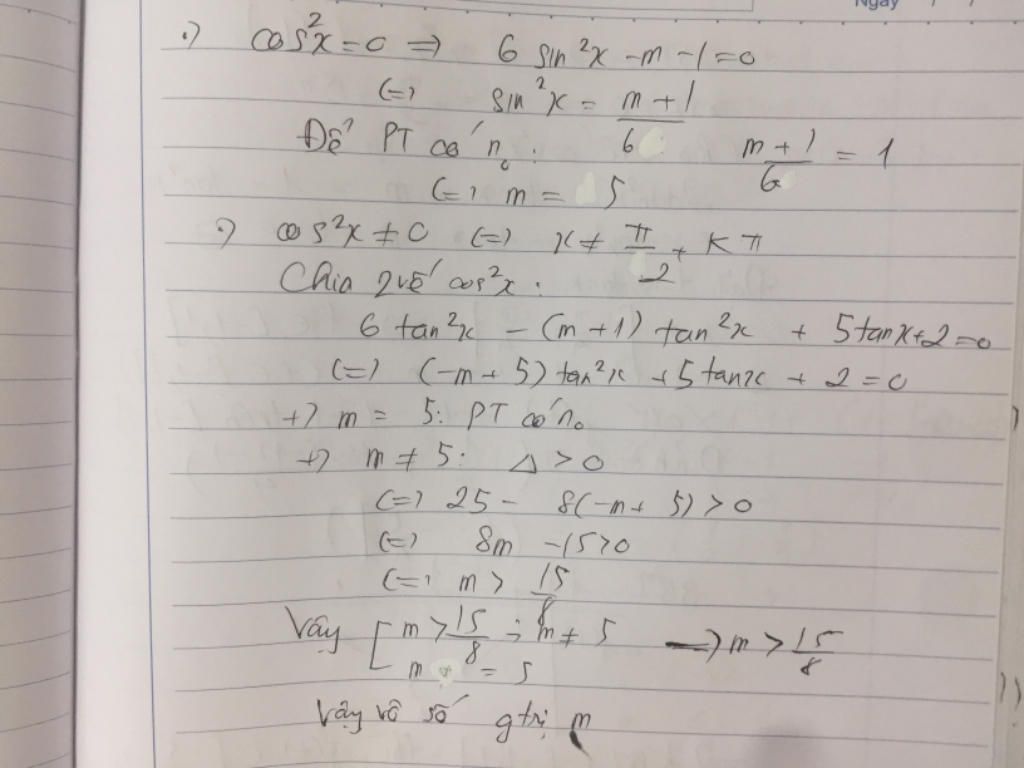 Ngày / /
.) cos²x = 0 => 6 sin²x - m - 1 = 0
(=) sin²x = (m + 1)/6
Để PT có n₀: (m + 1)/6 = 1
(=) m = 5
.) cos²x ≠ 0 (=) x ≠ π/2 + Kπ
Chia 2 vế cos²x:
6 tan²x - (m + 1) tan²x + 5 tanx + 2 = 0
(=) (-m + 5) tan²x + 5 tanx + 2 = 0
+) m = 5: PT có n₀
+) m ≠ 5: Δ > 0
(=) 25 - 8(-m + 5) > 0
(=) 8m - 15 > 0
(=) m > 15/8
Vậy [ m > 15/8 ; m ≠ 5 —) m > 15/8
m = 5
Vậy vô số g trị m